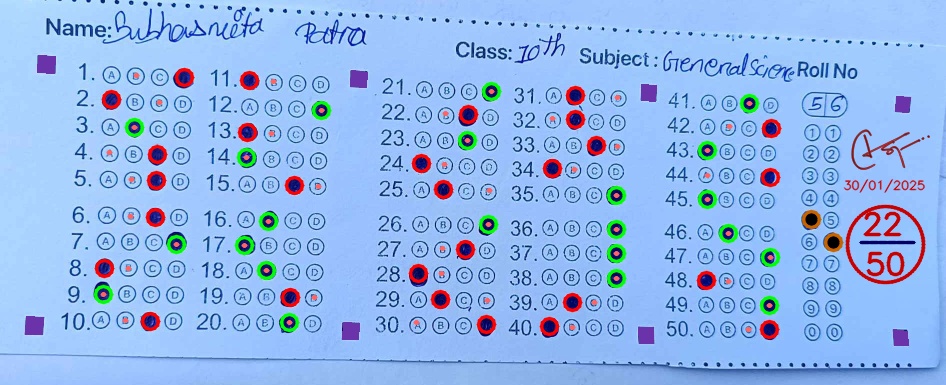 Name: Subhasmita Patra
Class: 10th Subject: General Science Roll No
1. A B C
2. B C D
3. A C D
4. A B D
5. A B D
6. A B D
7. A B C
8. B C D
9. B C D
10. A B D
11. B C D
12. A B C
13. B C D
14. B C D
15. A B D
16. A C D
17. B C D
18. A C D
19. A B D
20. A B D
21. A B C
22. A B D
23. A B D
24. B C D
25. A C D
26. A B C
27. A B D
28. B C D
29. A C D
30. A B C
31. A C D
32. A C D
33. A B D
34. B C D
35. A B C
36. A B C
37. A B C
38. A B C
39. A C D
40. B C D
41. A B D
42. A B C
43. B C D
44. A B C
45. B C D
46. A C D
47. A B C
48. B C D
49. A B C
50. A B C
5 6
1 1
2 2
3 3
4 4
5
6
7 7
8 8
9 9
0 0
30/01/2025
22
50